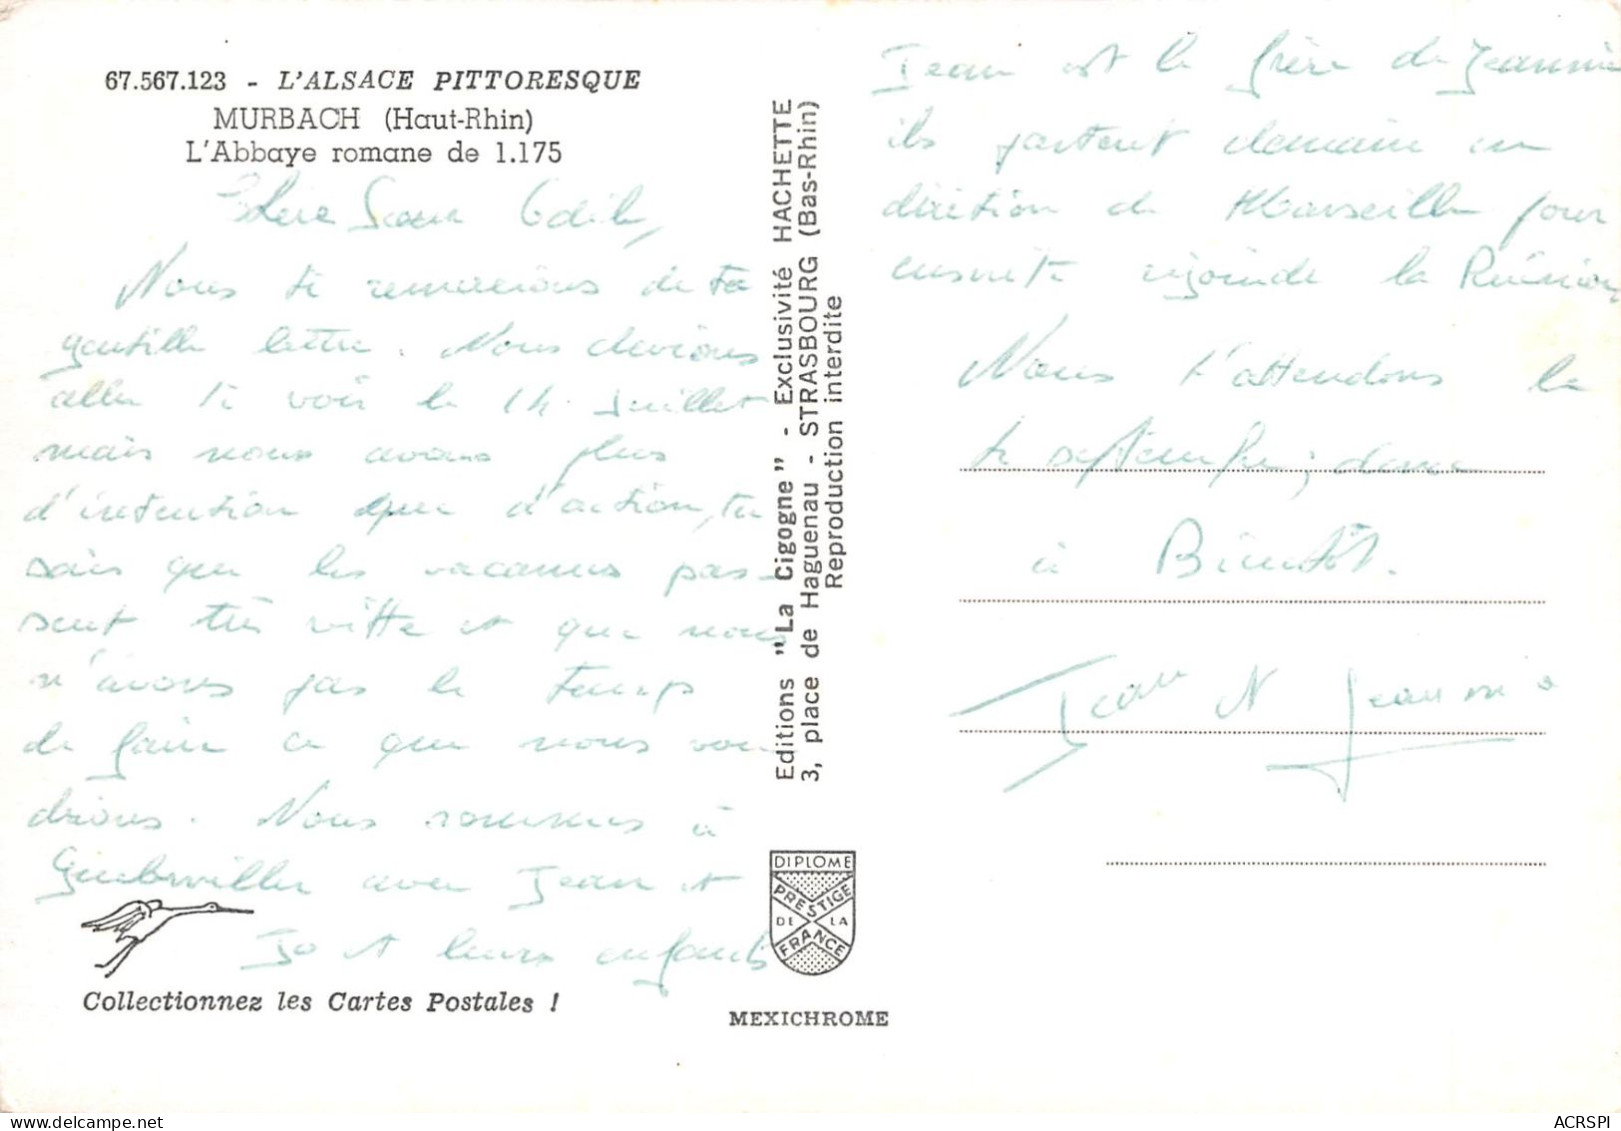 67.567.123 - L'ALSACE PITTORESQUE
MURBACH (Haut-Rhin)
L'Abbaye romane de 1.175
Chère Soeur Odile,
Nous te remercions de ta
gentille lettre. Nous devions
aller te voir le 14 Juillet
mais nous avons plus
d'intention que d'action, tu
sais que les vacances pas-
sent très vitte et que nous
n'avons pas le temps
de faire ce que nous vou
drions. Nous sommes à
Guebwiller avec Jean et
Jo et leurs enfants
Collectionnez les Cartes Postales !
Editions "La Cigogne" - Exclusivité HACHETTE
3, place de Haguenau - STRASBOURG (Bas-Rhin)
Reproduction interdite
DIPLOME
PRESTIGE
DE LA
FRANCE
MEXICHROME
Jean est le frère de Jeannie
ils partent demain en
direction de Marseille pour
ensuite rejoindre la Réunion
Nous t'attendons le
septembre, donc
à Bientôt.
Jean et Jeannie
ACRSPI